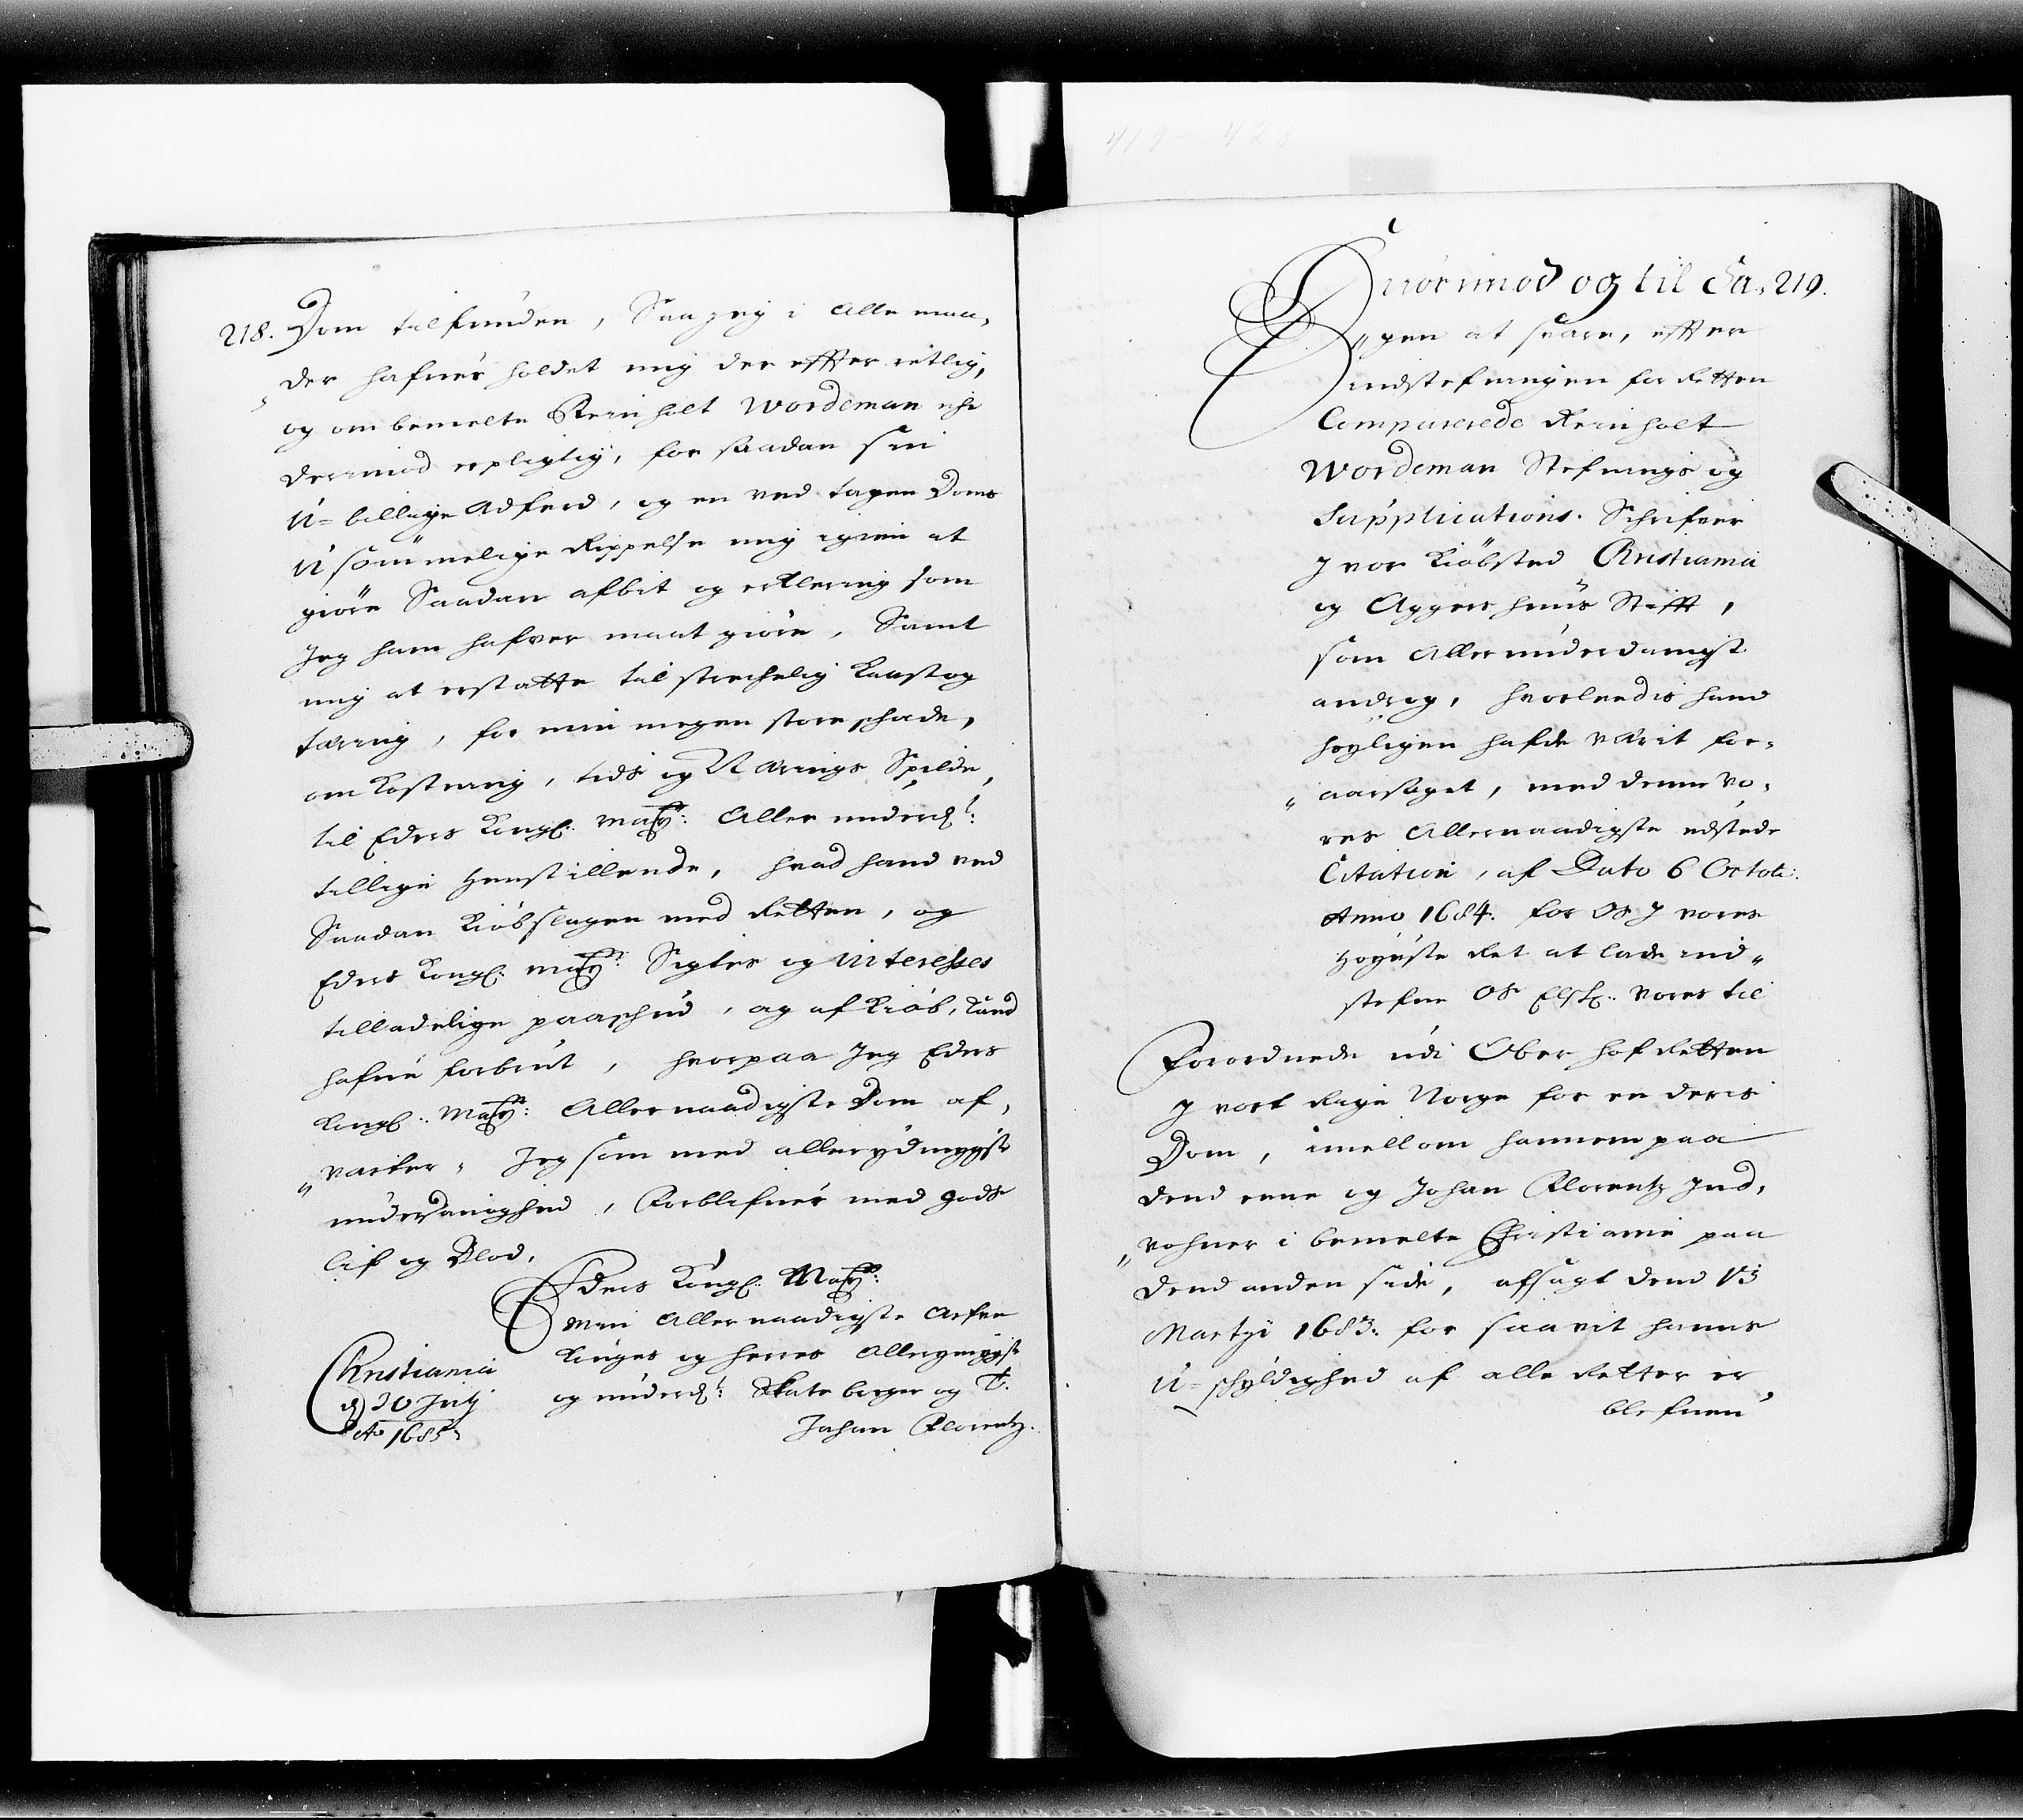 218. Dom tilfunden, Saa jeg i alle maa,
„der hafver holdet mig der effter retlig,
og om bemelte Reinholt Wordeman iche
derimod erpligtig, for saadan sin
U=billige Adferd, og en ved tagen Doms
Usømmelige Rippelse mig igien at
giøre Saadan afbit og erklering som
Jeg ham hafver maat giøre, Samt
mig at erstatte tilstrechelig Kaast og
tæring, for min megen store schade,
om kostning, tids og Nærings Spilde,
til Eders Kongl: Mayts: Aller underdt:
tillige henstillende, hvad hand ved
Saadan Kiøbslagen med Retten, og
Eders Kongl: Mayts: Sigtes og interesses
tilladelige paaschud, og afkiøb, kand
hafve forbrut, hvorpaa Jeg Eders
Kongl: Mayts: Allernaadigste Dom af,
„varter, Jeg som med allerydmygste
undersanighed, Forblifver med Gods
lif og Blod,
Eders Kongl: Mayts:
Min Allernaadigste Arfve
Konges og herres Allerydmygste
og underdt: Skatte borger og T.
Johan Florentz.
Christiania
d 20 July
Ao 1685
Hvorimod og til Sa, 219.
„gen at svare, effter
indstefningen for Retten
Comparerede Reinholt
Wordeman Stefnings og
Supplications. Schrifver
J vor Kiøbsted Christiania
og Aggershuus Stifft,
som Allerunderdanigst
androg, hvorledis hand
høyligen hafde værit for,
„aarsaget, med denne Vo,
res Allernaadigste udstede
Citation, af Dato 6 Octob:
Anno 1684. for Os J vores
Høyeste Ret at lade ind„
stefne Os Elskl: vores til
Forordnede udi Ober hof Retten
J vort Rige Norge for en deris
Dom, imellom hannem paa
dend eene og Johan Florentz Ind,
„vohner i bemelte Christiania paa
dend anden side, afsagt dend 13
Martyi 1683. for saavit hanns
U=schyldighed af alle Retter er
blefven